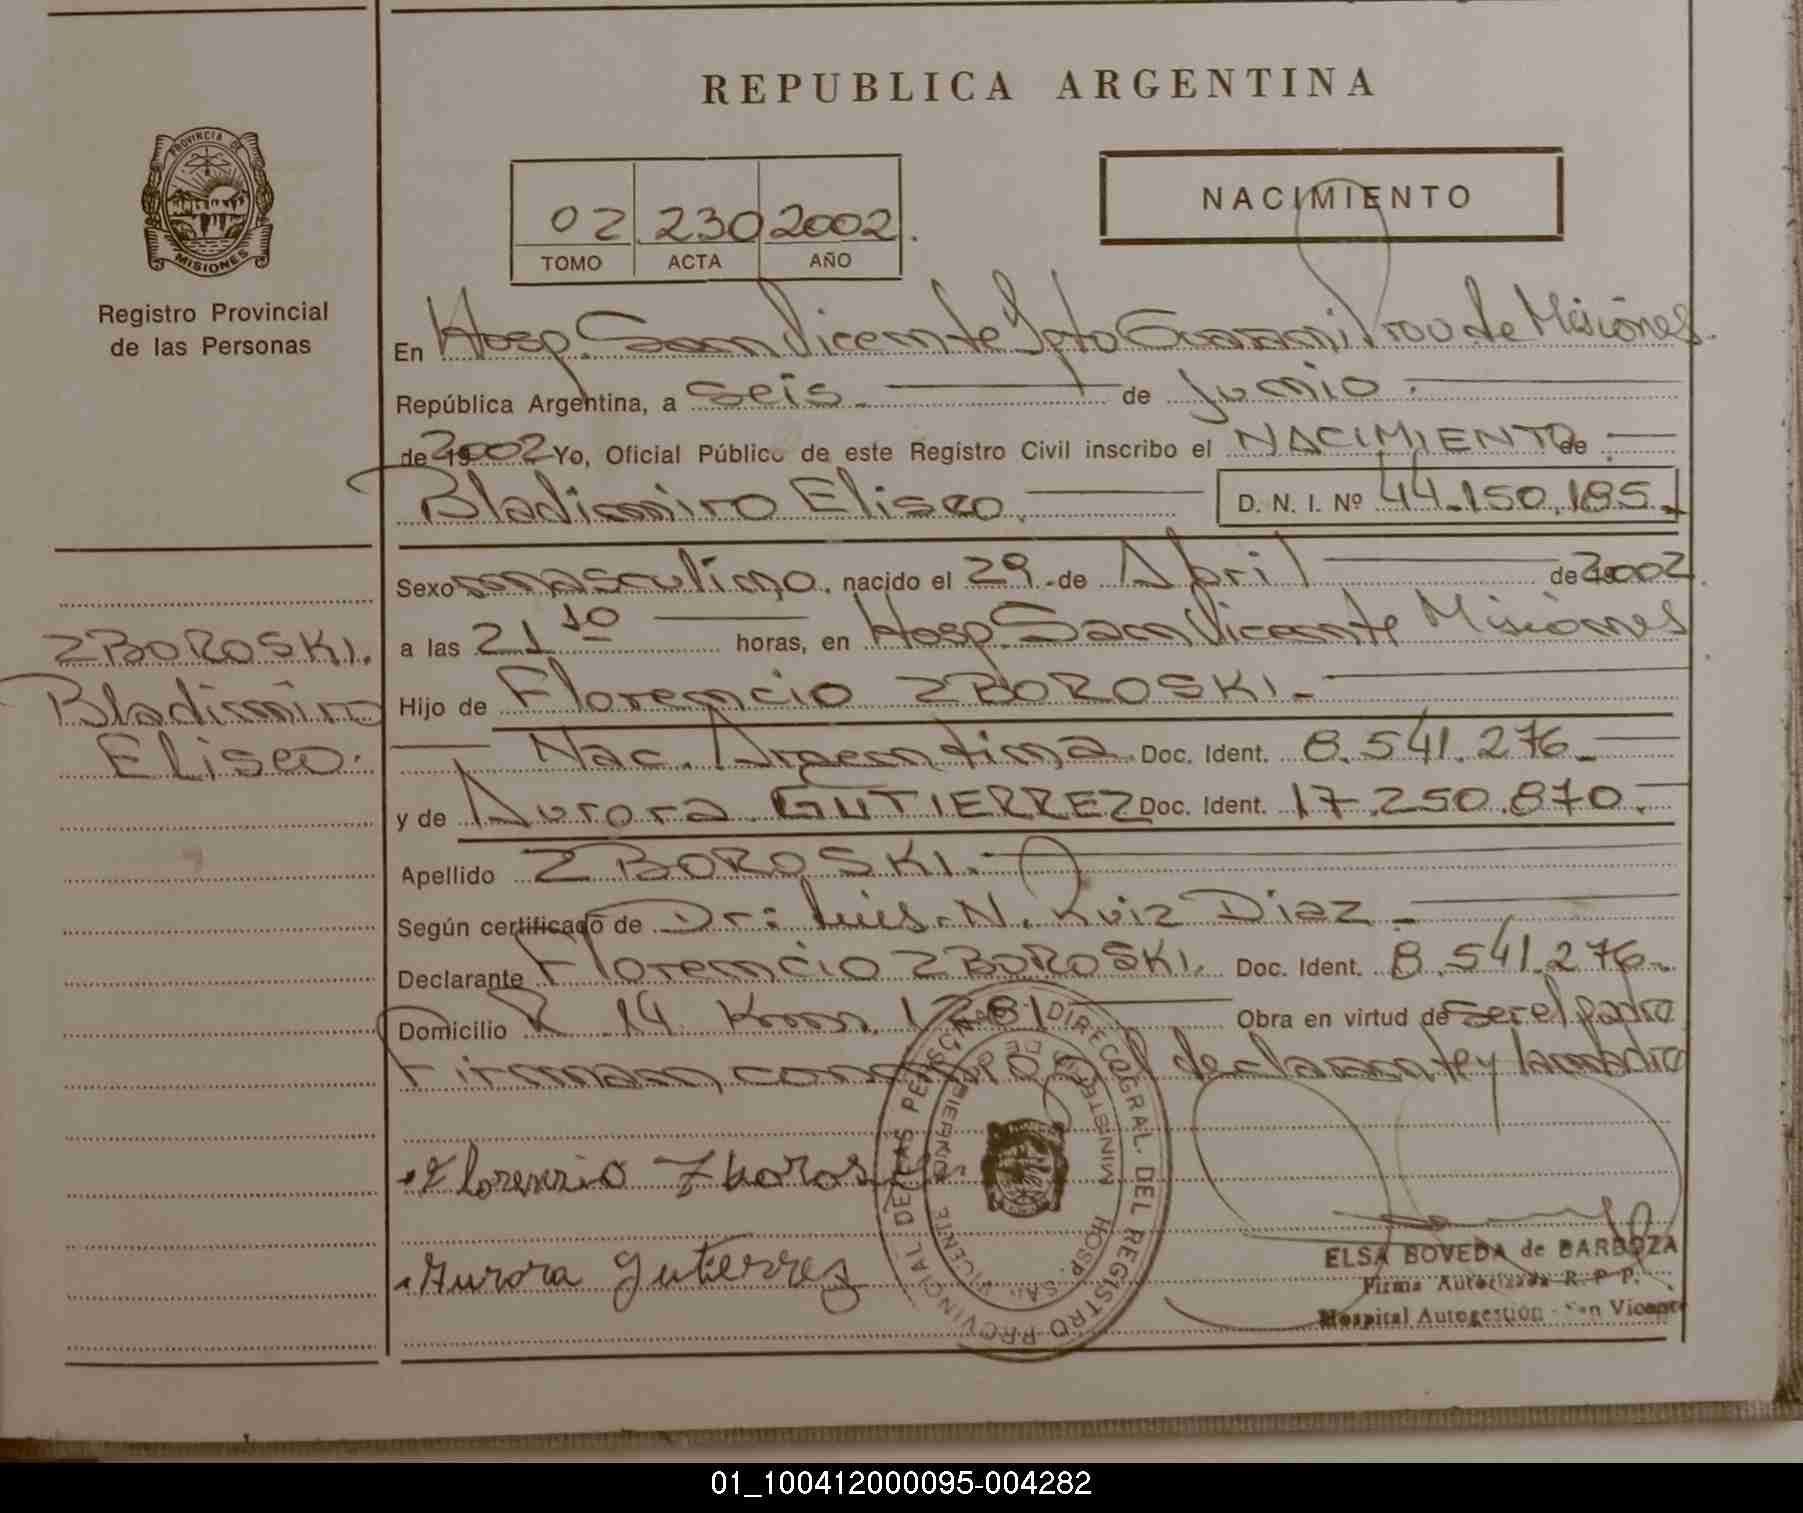 REPUBLICA ARGENTINA
PROVINCIA DE
MISIONES
Registro Provincial
de las Personas
02 230 2002.
TOMO ACTA AÑO
NACIMIENTO
En Hosp. San Vicente Dpto Guarani Prov de Misiones.
República Argentina, a seis. de junio.
de 2002 Yo, Oficial Público de este Registro Civil inscribo el NACIMIENTO de
Bladimiro Eliseo. D. N. I. Nº 44.150.185.-
Sexo masculino. nacido el 29.- de Abril de 2002.
a las 21 10 horas, en Hosp. San Vicente Misiones
Hijo de Florencio ZBOROSKI.-
Nac. Argentina Doc. Ident. 8.541.276.-
y de Aurora GUTIERREZ Doc. Ident. 17.250.870.
Apellido ZBOROSKI.-
Según certificado de Dr: Luis. N. Ruiz Diaz.-
Declarante Florencio ZBOROSKI. Doc. Ident. 8.541.276.-
Domicilio R 14 Km. 1281 Obra en virtud de ser el padre
Firman conmigo el declarante y la madre
ZBOROSKI.
Bladimiro
Eliseo.
Florenzio Zboroski
Aurora Gutierrez
DIREC. GRAL. DEL REGISTRO PROVINCIAL DE LAS PERSONAS
MINISTERIO DE GOBIERNO
HOSP. SAN VICENTE
ELSA BOVEDA de BARBOZA
Firma Autorizada R. P. P.
Hospital Autogestión - San Vicente
01_100412000095-004282